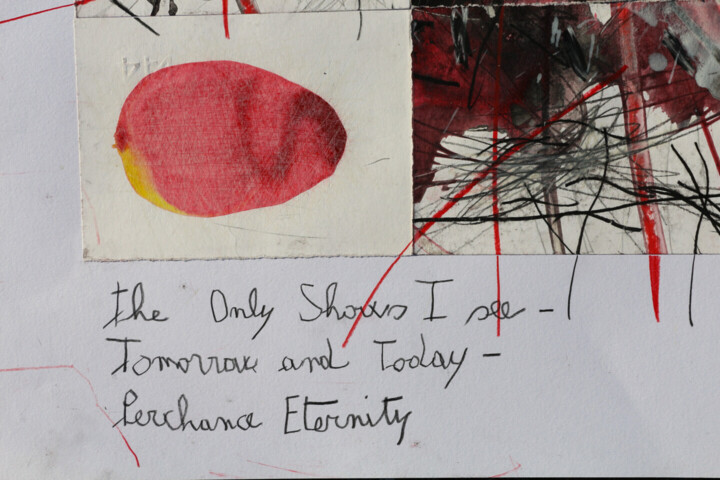 The Only Shows I see –
Tomorrow and Today –
Perchance Eternity